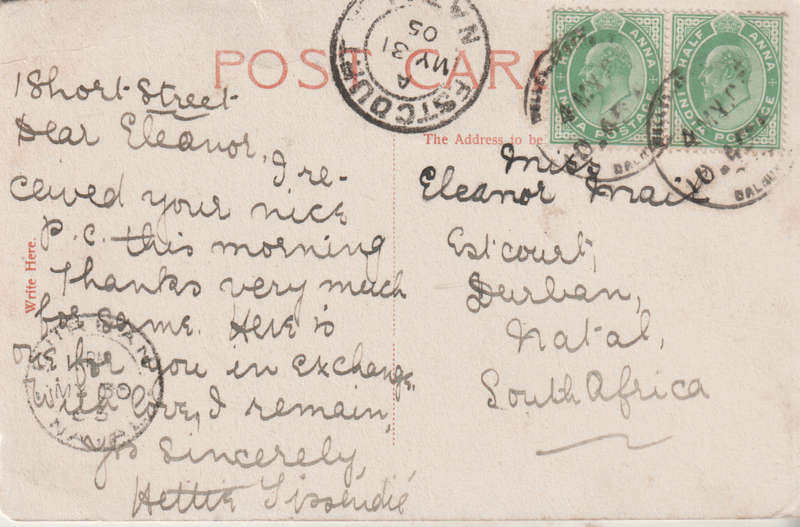 POST CARD
ESTCOURT
A
MY 31
05
NATAL
HALF ANNA
INDIA POSTAGE
HALF ANNA
INDIA POSTAGE
The Address to be
Write Here.
1 Short Street
Dear Eleanor, I re-
ceived your nice
P.C. this morning
Thanks very much
for same. Here is
one for you in exchange.
With love, I remain,
Yrs Sincerely,
Hettie
Miss
Eleanor Mail
Estcourt,
Durban,
Natal,
South Africa